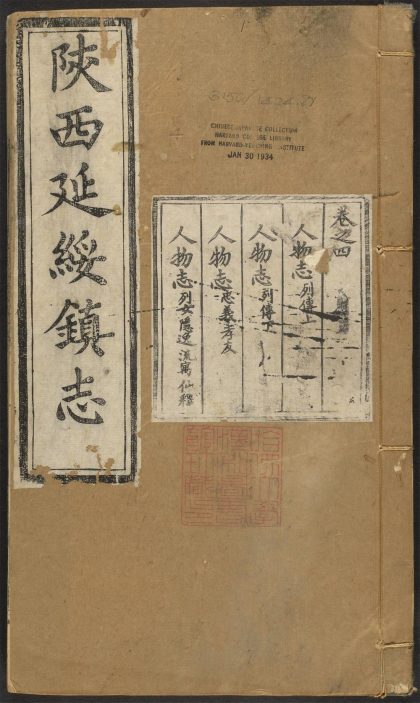 陝西延綏鎮志
3150/1234.81
CHINESE-JAPANESE COLLECTION
HARVARD COLLEGE LIBRARY
FROM HARVARD-YENCHING INSTITUTE
JAN 30 1934
卷之四
人物志 列傳上
人物志 列傳下
人物志 忠義孝友
人物志 列女隱逸流寓仙釋